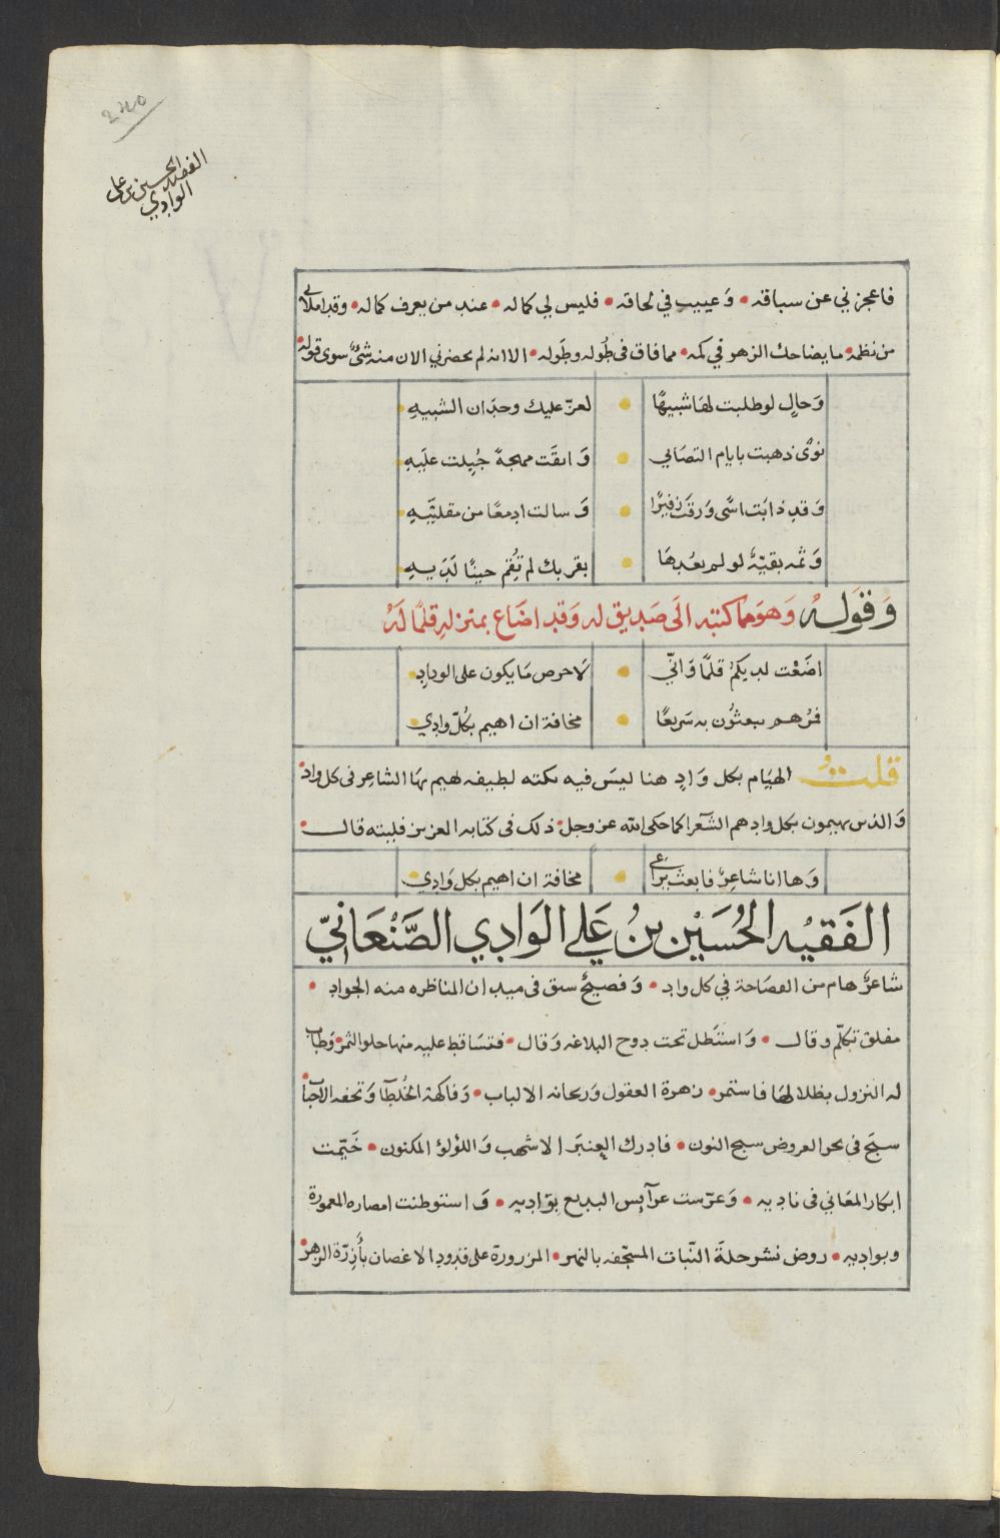 240
الفقيه الحسين بن علي
الوادي
فاعجزني عن سباقه • وَعييت في لحاقه • فليس لي كماله • عند من يعرف كماله • وقد املاني
من نظمه • ما يضاحك الزهو في كمه • مما فاق في طُوله وطَوله • الا انه لم يحضرني الان منه شيء سوى قوله
وَحالٍ لو طلبت لهَا شبيهًا • لعزّ عليك وجدَان الشبيهِ
نوًى ذهبت بايام التصَابي • وَ ابقَت مهجةً جُبِلت علَيهِ
وَقد ذابَت اسًى وَرقَت زفيرًا • وَ سالت ادمعًا من مقليَّهِ
وَثمه بقيّةٌ لو لم يعُدهَا • بقربك لم تُقِم حينًا لدَيهِ
وَقَوله وَهوَ مما كتبه الَى صَديقٍ له وَقد اضَاع بمنزلهِ قلمًا لَهُ
اضَعْت لديكمُ قلمًا وَانّي • لَاحرص مَا يكون على الودادِ
فمُرْهم يبعثُون به سَريعًا • مخافة ان اهيم بكُلّ وادي
قلتُ الهيَام بكل وَادٍ هنا ليسَ فيه نكته لطيفه لهيم بهَا الشاعِر في كل واد
وَالذين يهيمون بكل وادٍ هم الشّعرآ كما حكى الله عز وجل • ذلك في كتابه العزيز فليته قال
وَها انا شاعِرٌ فابعث يراعي • مخافة ان اهيم بكل وَادي
الفَقيْه الحُسَيْن بنُ عَلي الوَادِي الصَّنْعَانيّ
شاعرٌ هام من الفصَاحة في كل واد • وَفصيحٌ سبق في ميدان المناظره منه الجواد •
مفلق تكلّم وقال • وَاستَظل تحت دوح البلاغه وَقال • فتسَاقط عليه منها حلو الثمر وَطاب
له النزول بظلالهَا فاستمر • زهرة العقول وَريحانه الالباب • وَفاكهة الخُلطَآ وَتحفه الاحباب
سبَح في بحر العروض سبح النون • فادرك العنبَر الاشهب وَاللؤلؤ المكنون • خَيّمت
ابكار المعَاني في ناديه • وَعرّست عرآيس البديع بوَاديه • وَ استوطنت امصاره المعمورة
وبواديه • روض نشر حلةَ النّبات المسجّفه بالنهر • المزرورة على قدود الاغصان بأزِرّة الزهر